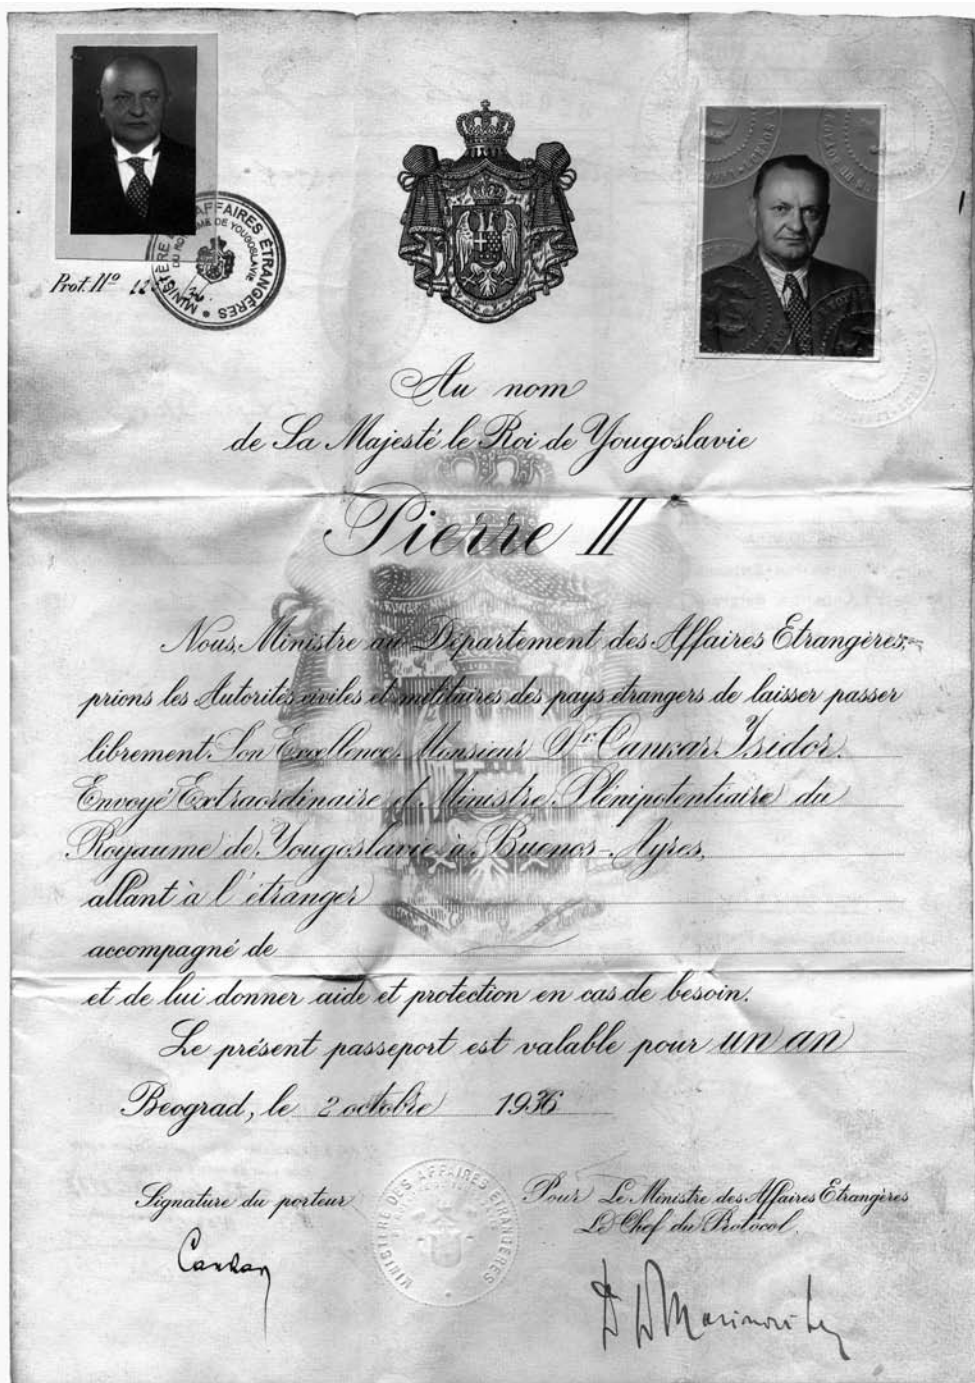 Prot. Nº
MINISTÈRE AFFAIRES ÉTRANGÈRES
DU ROYAUME DE YOUGOSLAVIE
Au nom
de Sa Majesté le Roi de Yougoslavie
Pierre II
Nous, Ministre au Département des Affaires Etrangères,
prions les Autorités civiles et militaires des pays étrangers de laisser passer
librement Son Excellence, Monsieur Dr. Cankar Isidor.
Envoyé Extraordinaire et Ministre Plénipotentiaire du
Royaume de Yougoslavie à Buenos-Ayres,
allant à l'étranger
accompagné de
et de lui donner aide et protection en cas de besoin.
Le présent passeport est valable pour un an
Beograd, le 2 octobre 1936
Signature du porteur
Cankar
MINISTÈRE DES AFFAIRES ETRANGÈRES
Pour Le Ministre des Affaires Etrangères
Le Chef du Protocol.